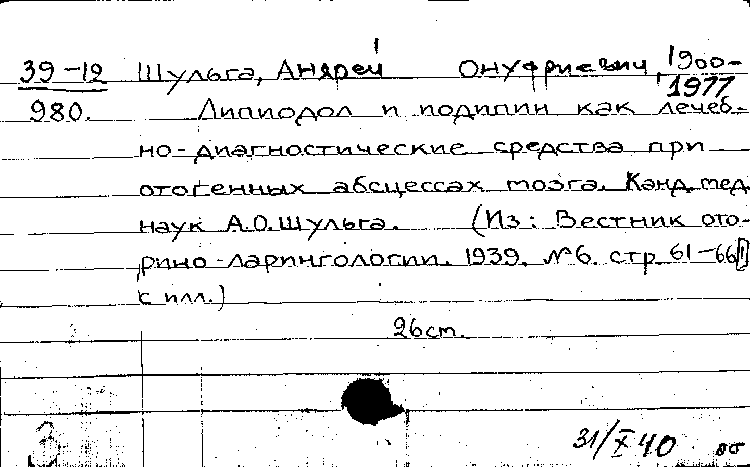 39-12 Шульга, Андрей Онуфриевич, 1900-
1977
980. Липиодол и иодипин как лечеб-
но-диагностические средства при
отогенных абсцессах мозга. Канд. мед.
наук А.О. Шульга. (Из: Вестник ото-
рино-ларингологии. 1939. №6. стр. 61-66
с илл.)
26 ст.
31/X 40